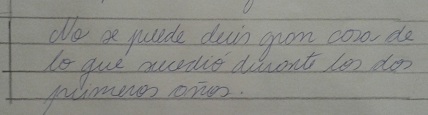 No se puede decir gran cosa de
lo que sucedió durante los dos
primeros años.